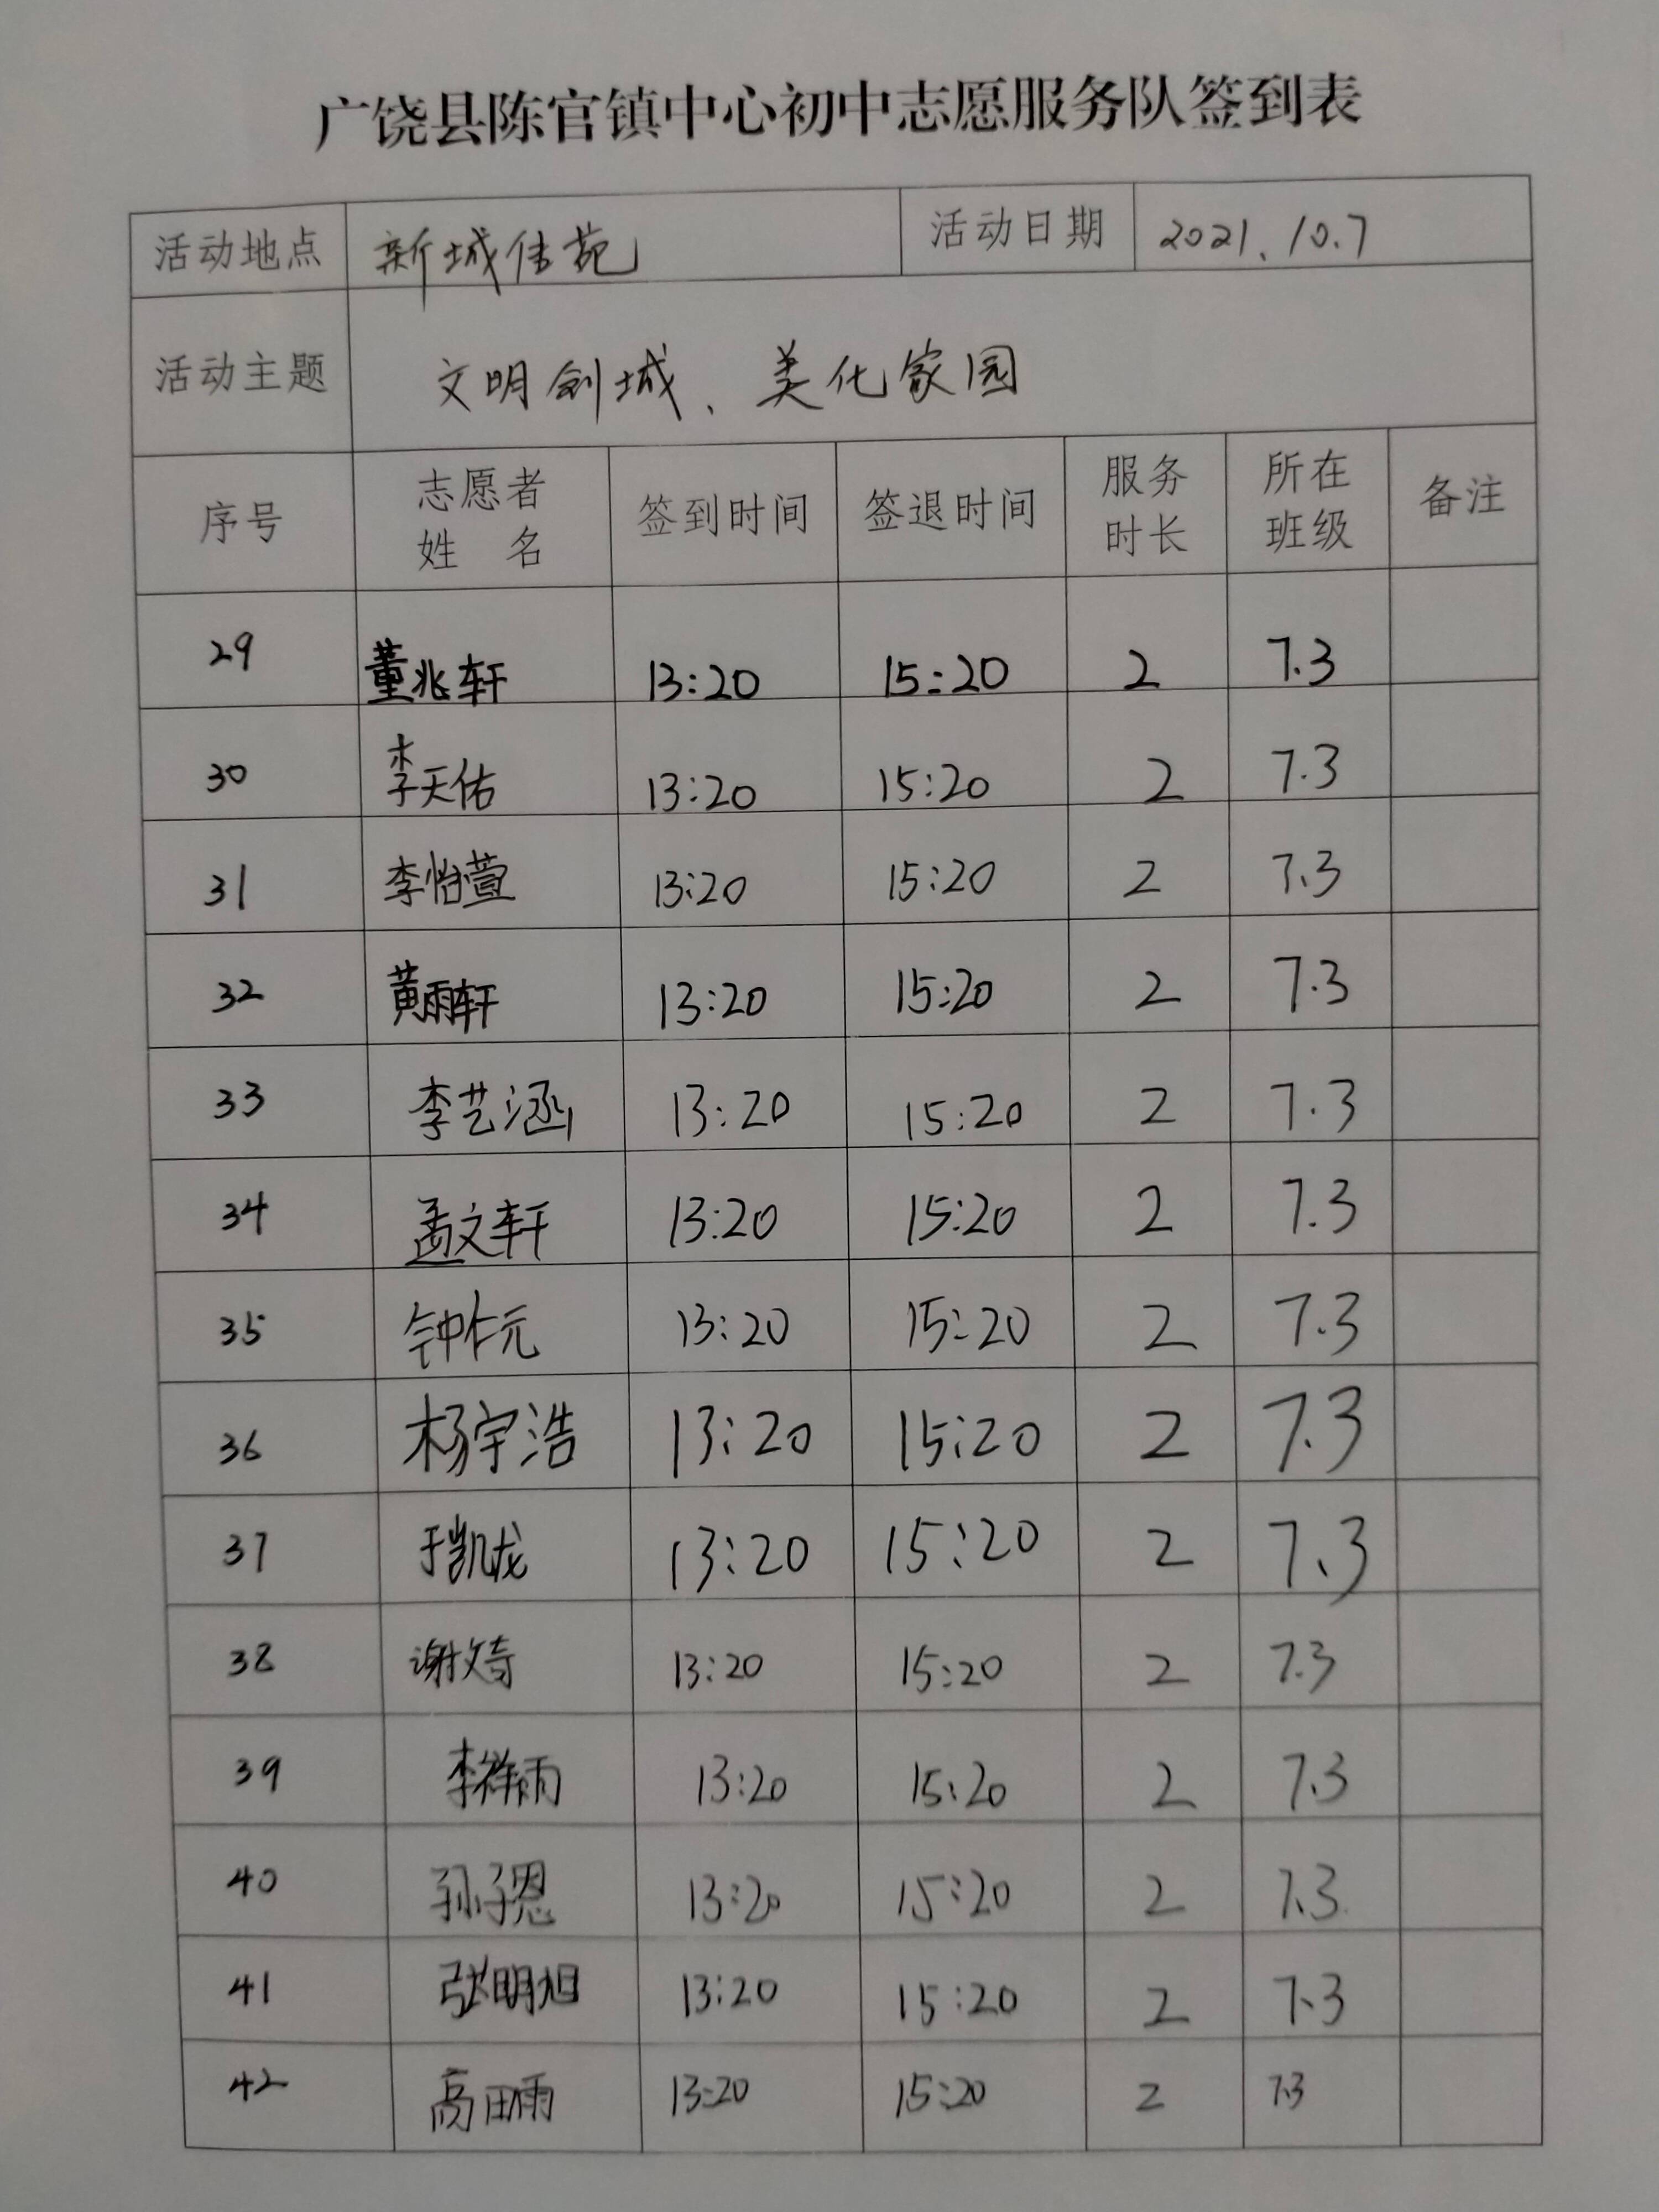 广饶县陈官镇中心初中志愿服务队签到表
活动地点 新城佳苑 活动日期 2021.10.7
活动主题 文明创城、美化家园
序号 志愿者姓名 签到时间 签退时间 服务时长 所在班级 备注
29 董兆轩 13:20 15:20 2 7.3
30 李天佑 13:20 15:20 2 7.3
31 李怡萱 13:20 15:20 2 7.3
32 黄雨轩 13:20 15:20 2 7.3
33 李艺涵 13:20 15:20 2 7.3
34 孟文轩 13:20 15:20 2 7.3
35 钟仁元 13:20 15:20 2 7.3
36 杨宇浩 13:20 15:20 2 7.3
37 于凯龙 13:20 15:20 2 7.3
38 谢文奇 13:20 15:20 2 7.3
39 李祥雨 13:20 15:20 2 7.3
40 孙子恩 13:20 15:20 2 7.3
41 张明旭 13:20 15:20 2 7.3
42 高田雨 13:20 15:20 2 7.3